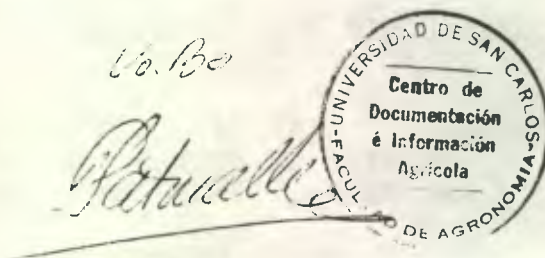 Vo. Bo
UNIVERSIDAD DE SAN CARLOS
Centro de
Documentación
é Información
Agrícola
FACULTAD DE AGRONOMIA